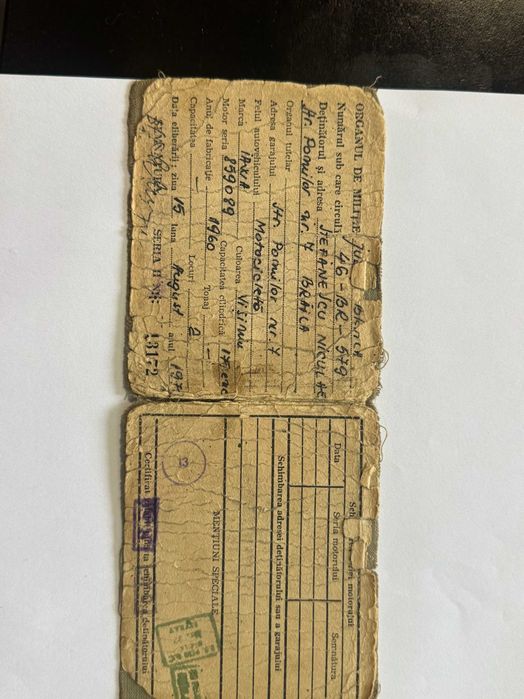 ORGANUL DE MILIȚIE JUD. BRĂILA
Numărul sub care circulă 46-BR-579
Deținătorul și adresa ȘTEFĂNESCU NICULAE
Str. Pomilor nr. 7 BRĂILA
Organul tutelar
Adresa garajului Str. Pomilor nr. 7
Felul autovehiculului Motocicletă
Marca IAWA Culoarea Vișiniu
Motor seria 859089 Capacitatea cilindrică
Anul de fabricație 1960 Tonaj -
Capacitatea - Locuri 2
Data eliberării: ziua 15 luna August anul
SERIA H NR. 13172
Data
Seria motorului
Semnătura
motorului
Schimbarea adresei deținătorului sau a garajului
MENȚIUNI SPECIALE
13
Certificat
schimbarea deținătorului